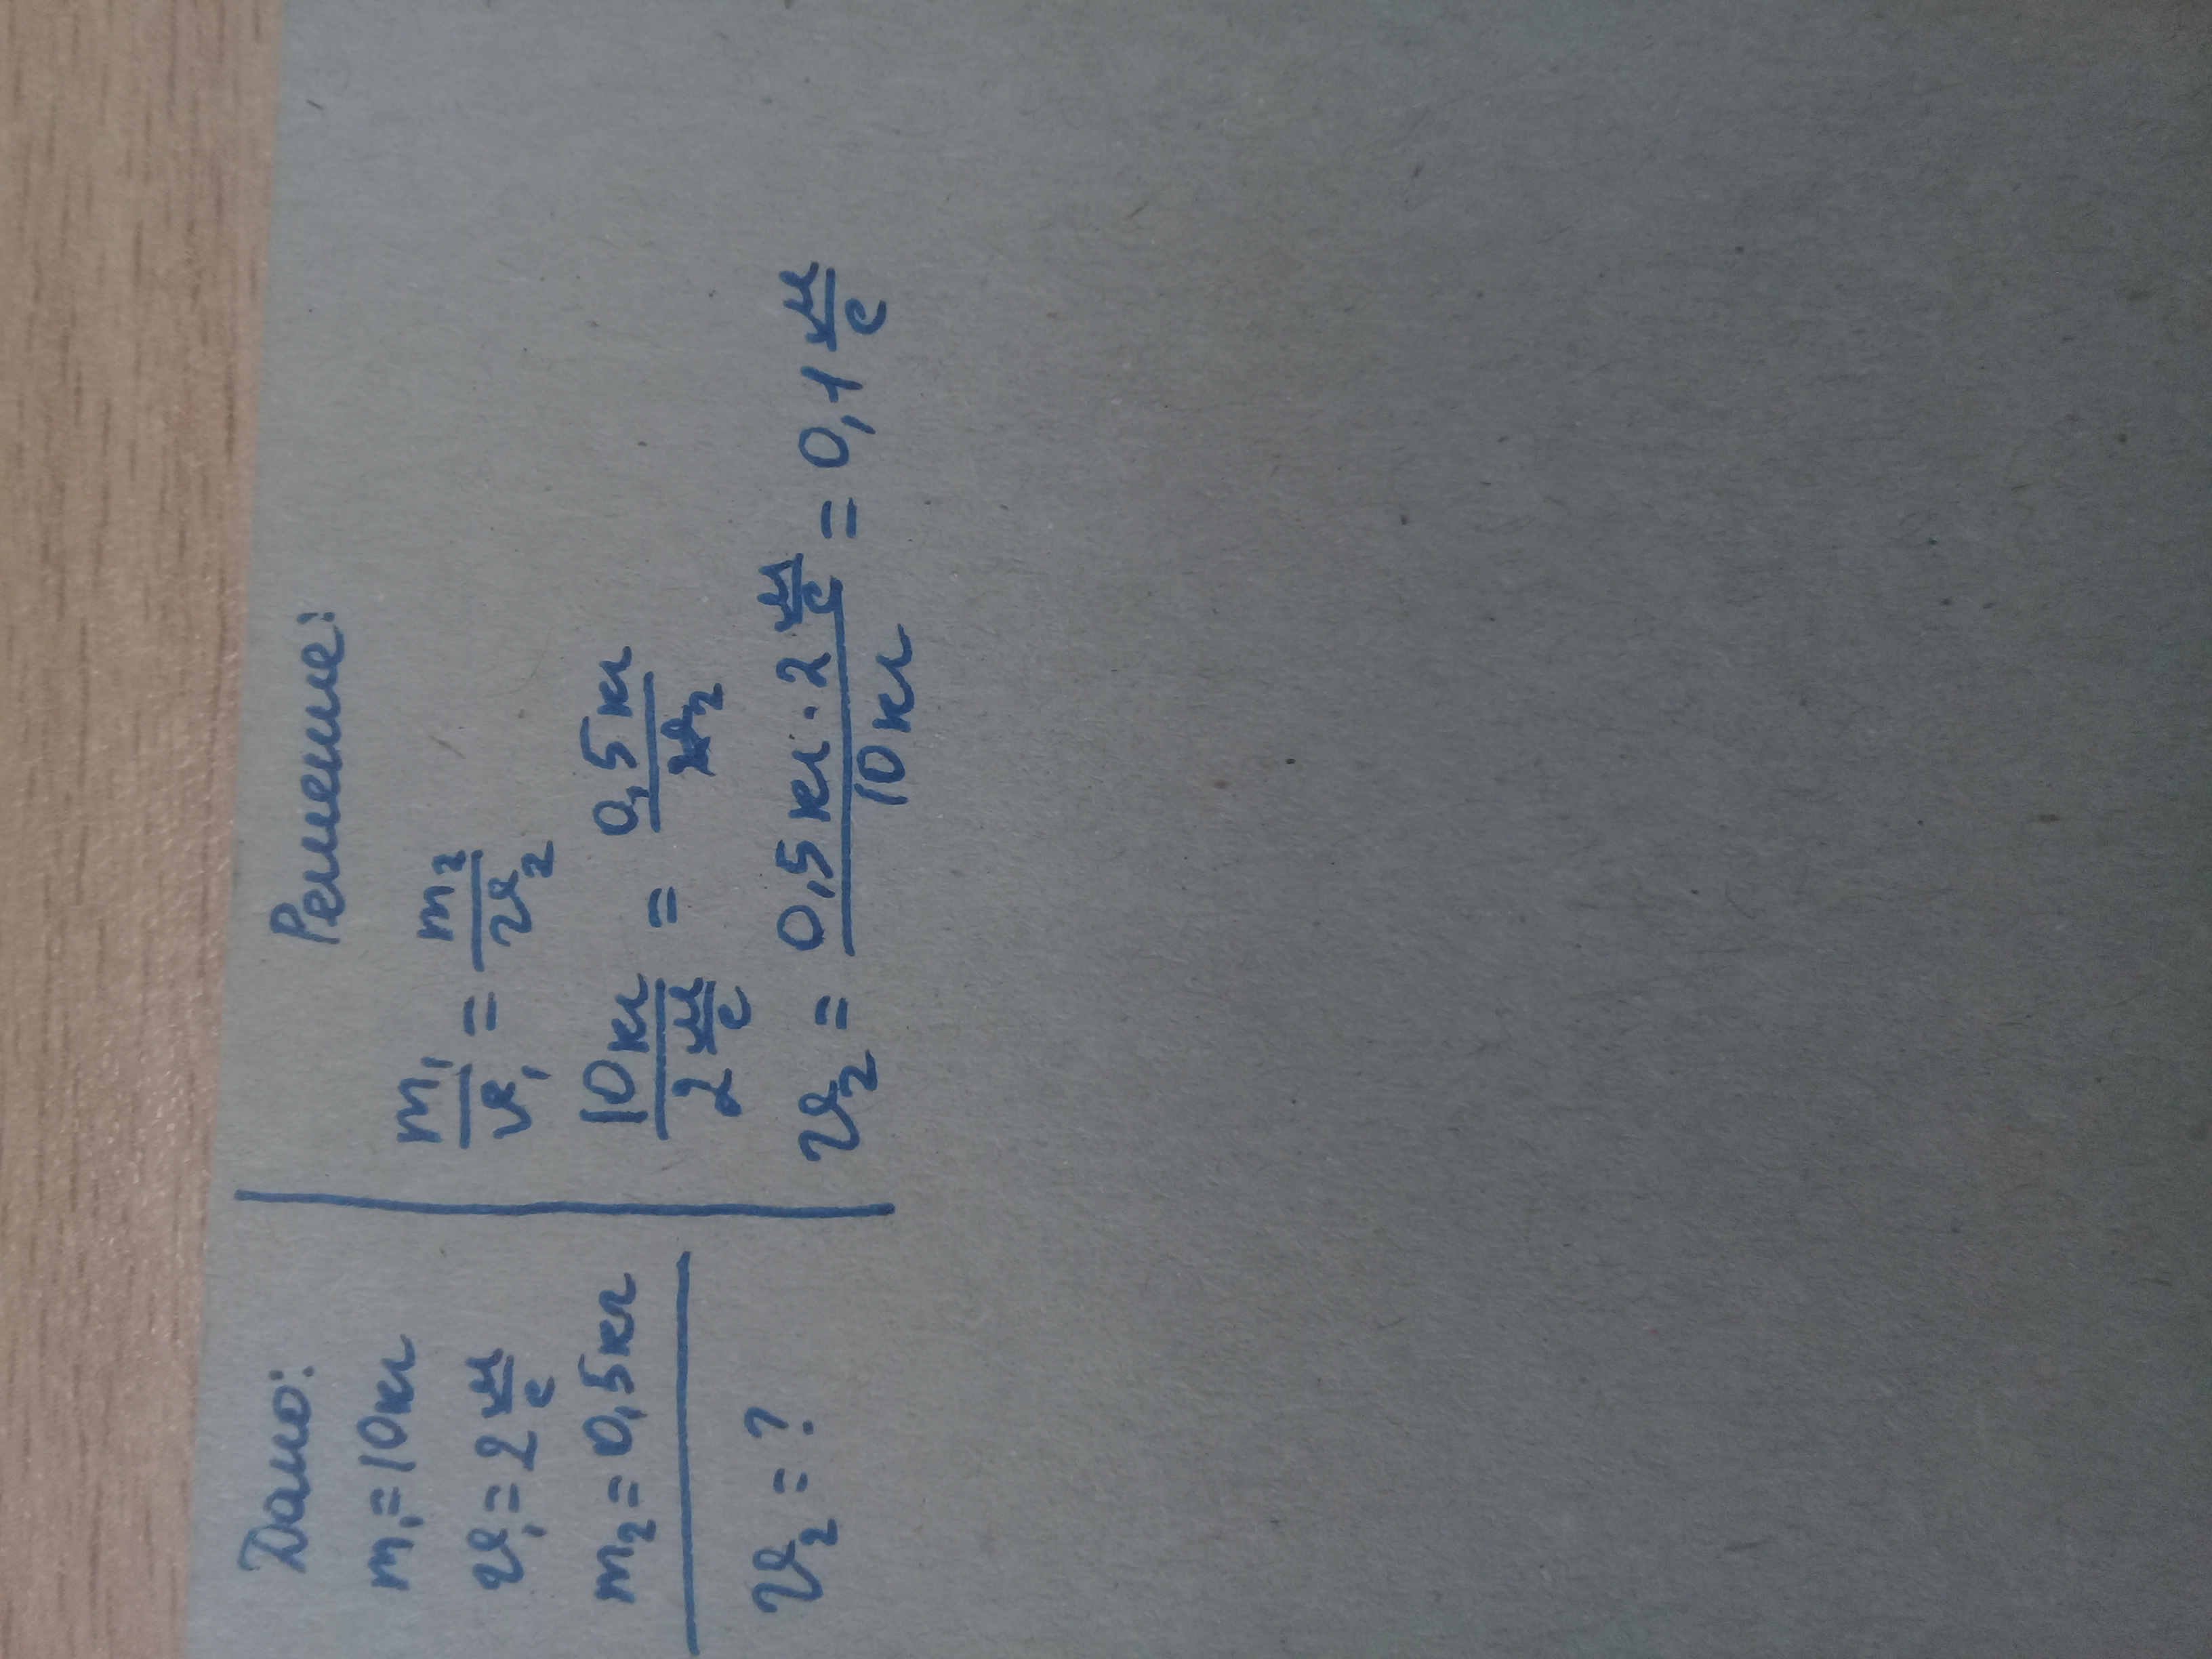 Дано:
m₁=10кг
v₁=2 м/с
m₂=0,5кг
v₂=?
Решение:
m₁/v₁ = m₂/v₂
10кг/2 м/с = 0,5кг/v₂
v₂ = 0,5кг·2 м/с / 10кг = 0,1 м/с